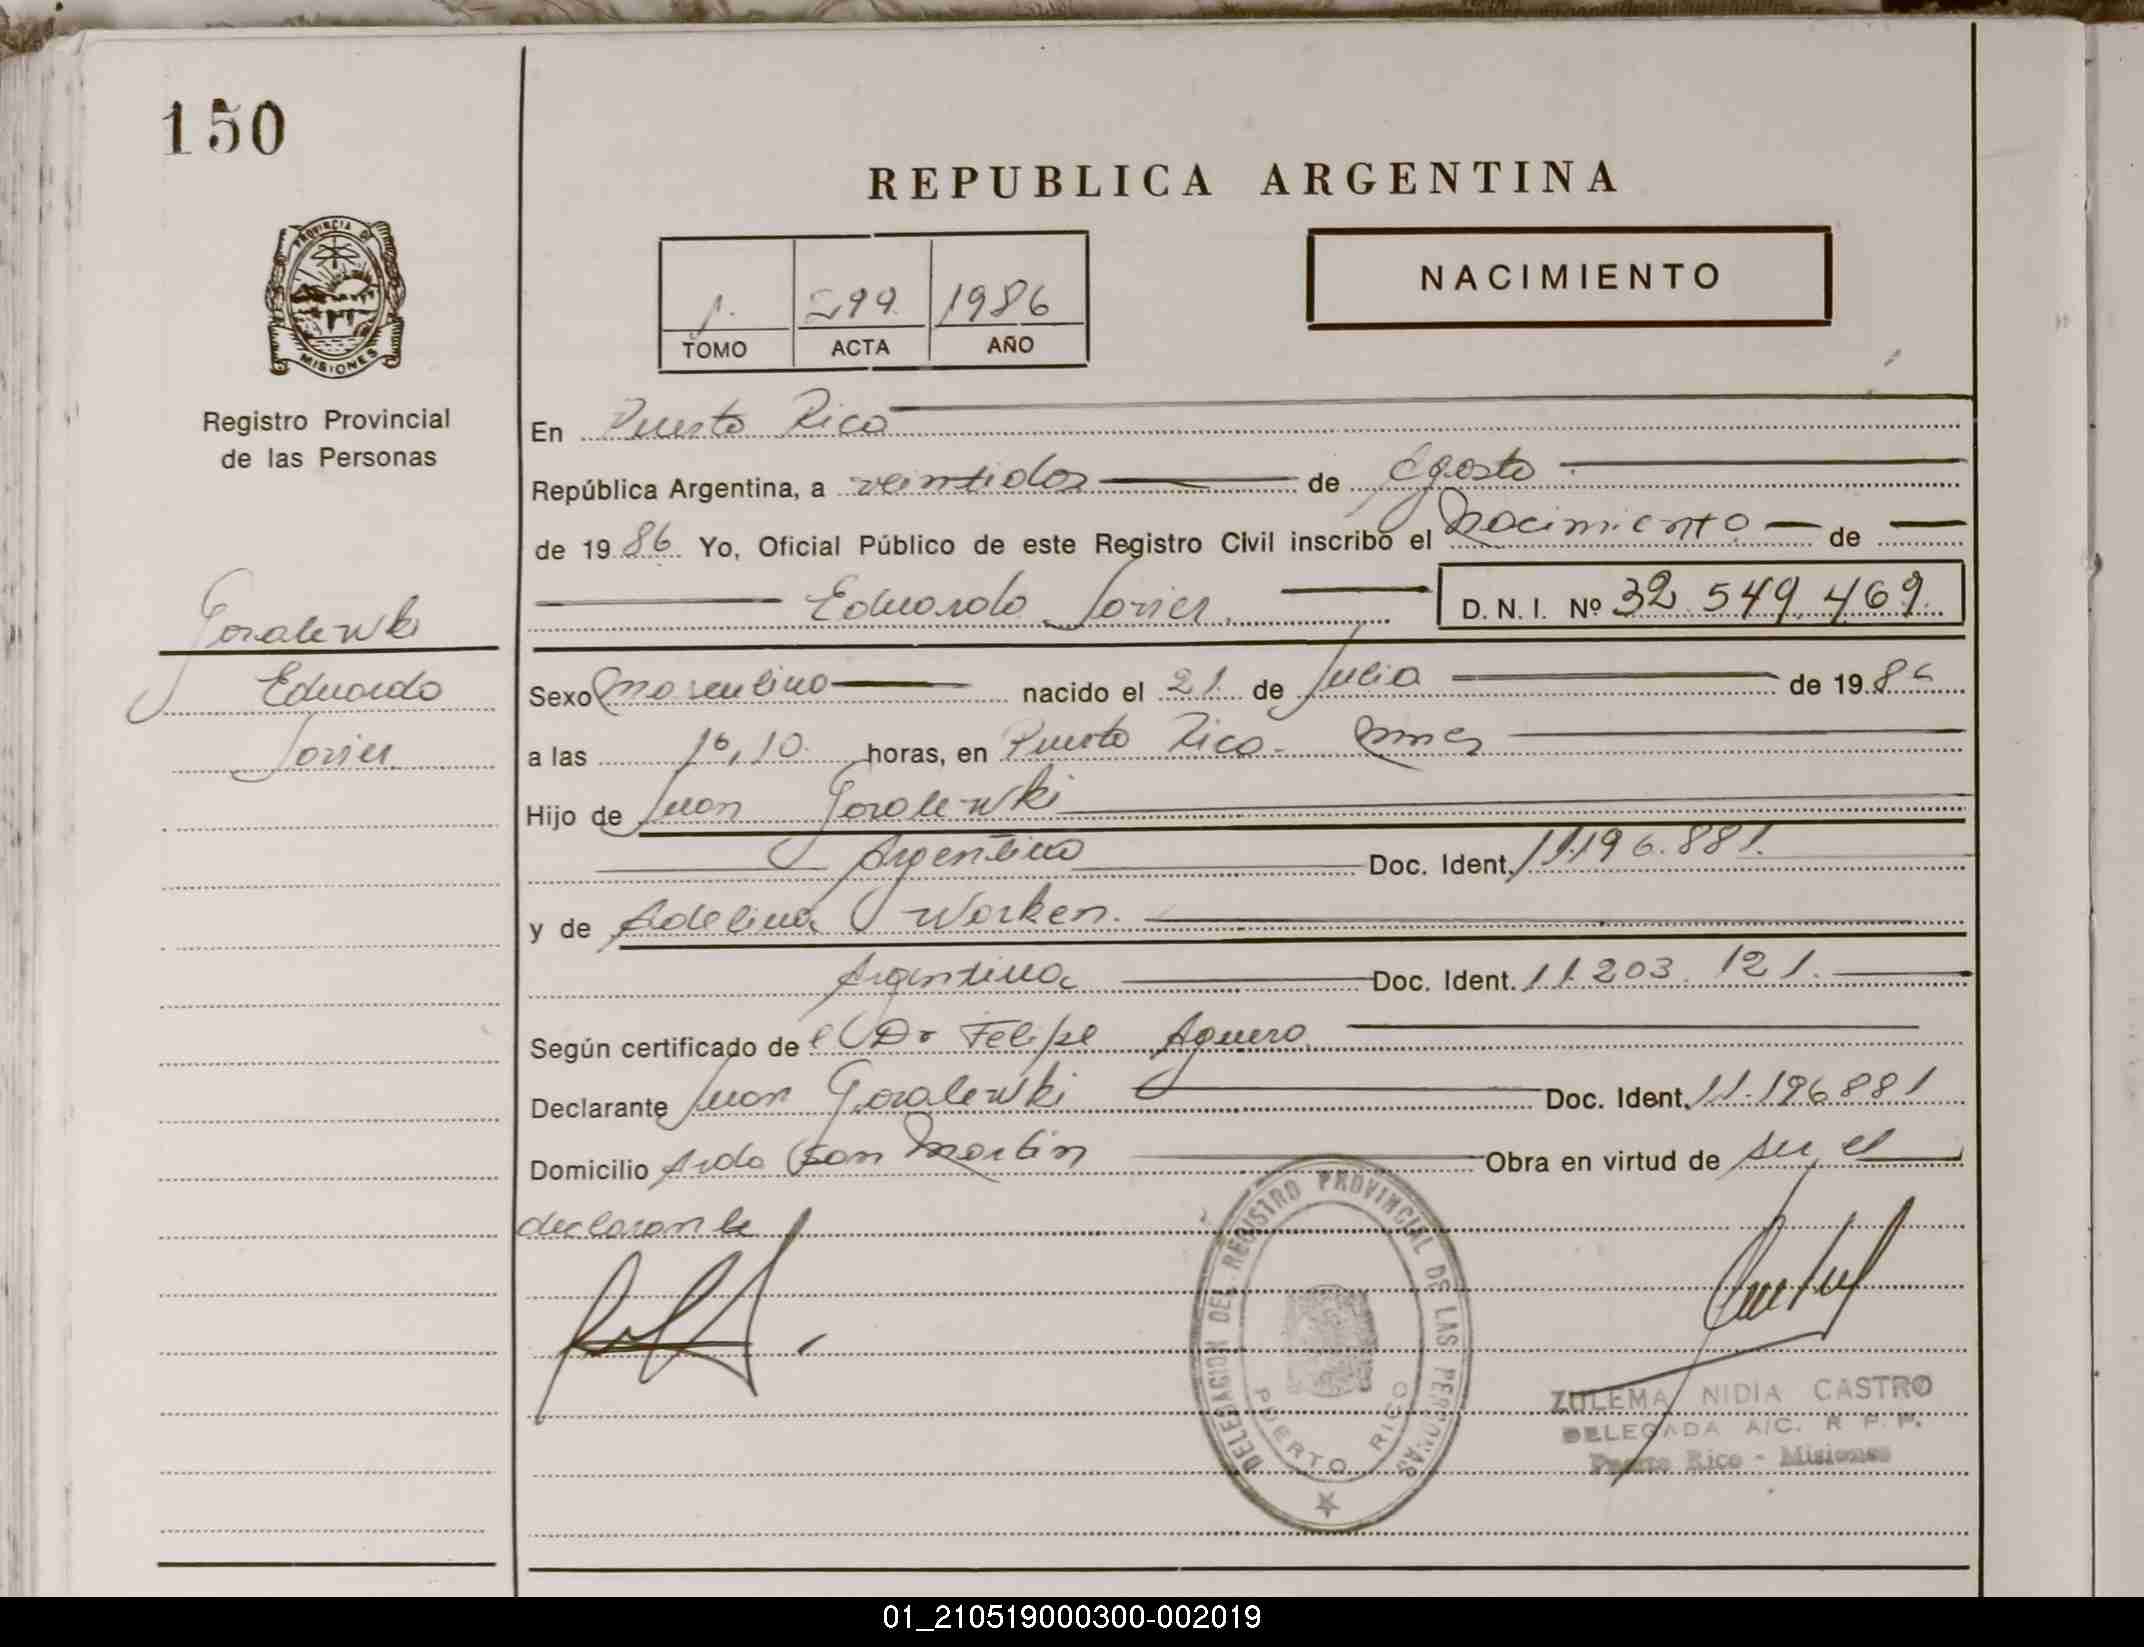 150
REPUBLICA ARGENTINA
PROVINCIA DE
MISIONES
Registro Provincial
de las Personas
1. 299 1986
TOMO ACTA AÑO
NACIMIENTO
En Puerto Rico
República Argentina, a veintidos de Agosto
de 1986 Yo, Oficial Público de este Registro Civil inscribo el Nacimiento de
Eduardo Javier. D. N. I. Nº 32.549.469
Goralewski
Eduardo
Javier
Sexo masculino nacido el 21 de Julio de 1986
a las 16,10 horas, en Puerto Rico - Mnes
Hijo de Juan Goralewski
Argentino Doc. Ident. 11.196.881.
y de Adelina Worken.
Argentina Doc. Ident. 11.203.121.
Según certificado de el Dr Felipe Aguero
Declarante Juan Goralewski Doc. Ident. 11.196.881
Domicilio Avda San Martin Obra en virtud de ser el
declarante
DELEGACION DEL REGISTRO PROVINCIAL DE LAS PERSONAS
PUERTO RICO
ZULEMA NIDIA CASTRO
DELEGADA A/C. R. P. P.
Puerto Rico - Misiones
01_210519000300-002019